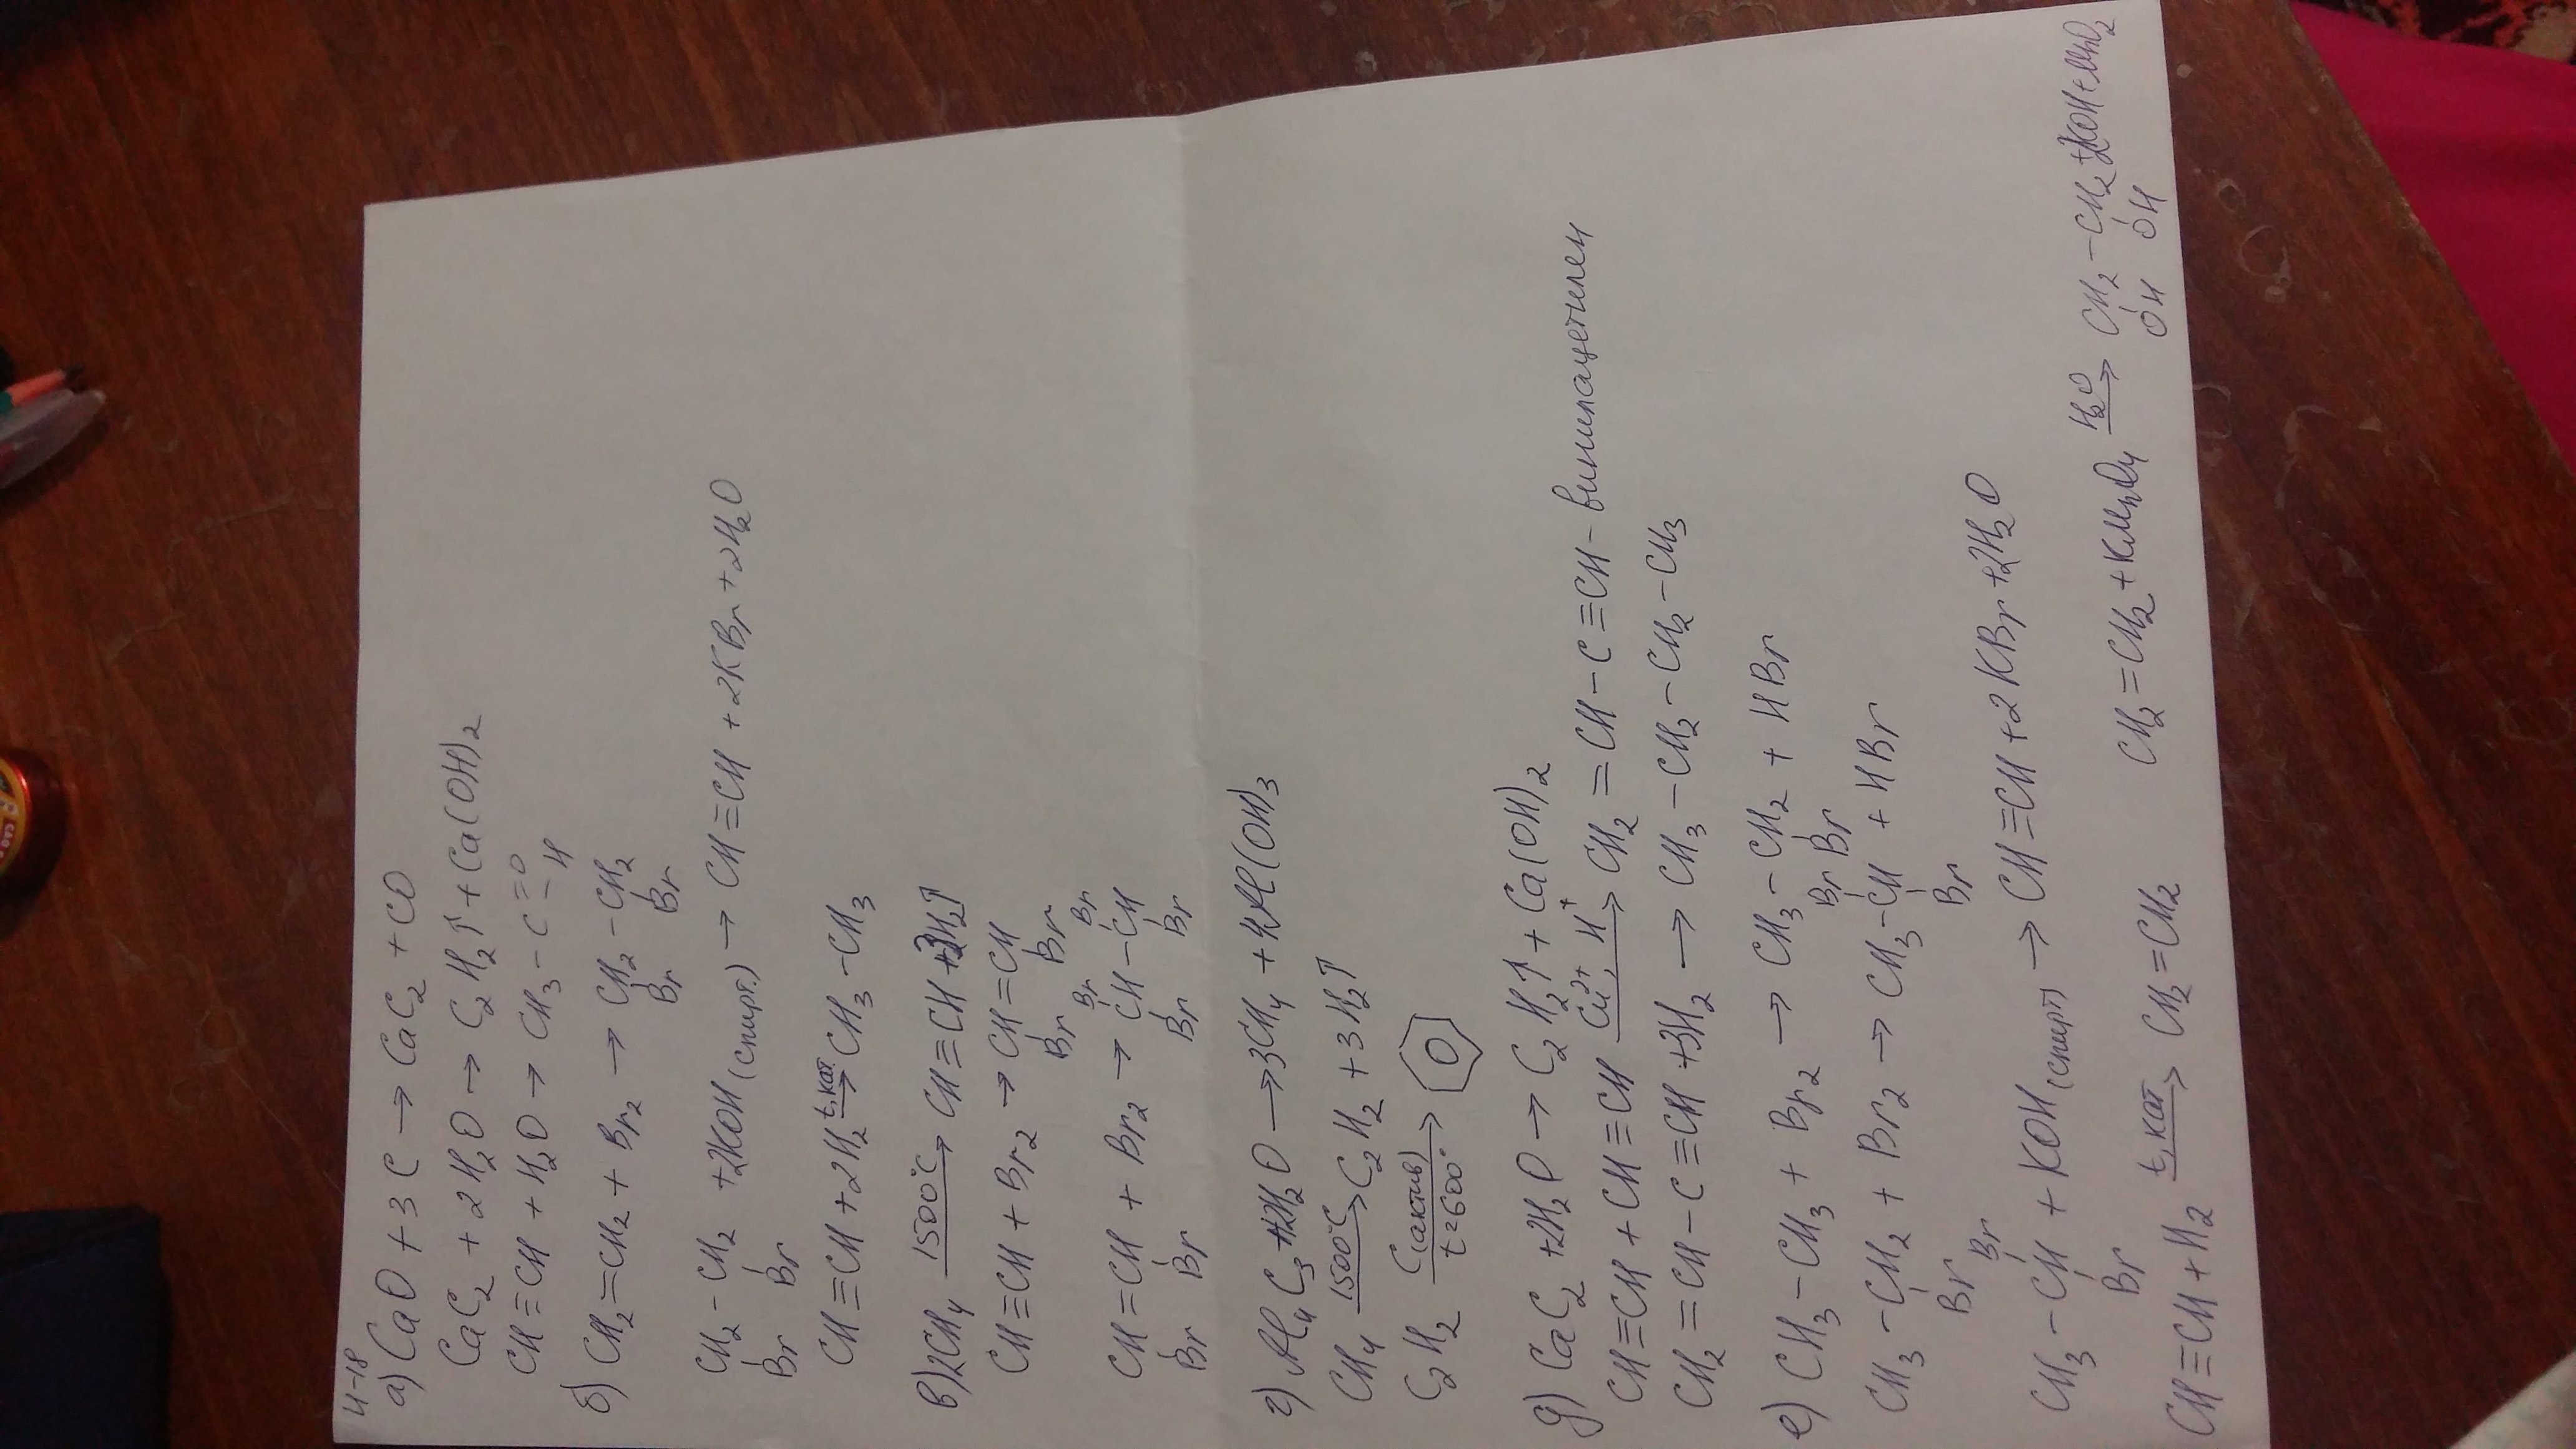 4-18
а) CaO + 3C → CaC2 + CO
CaC2 + 2H2O → C2H2↑ + Ca(OH)2
CH≡CH + H2O → CH3 – C =O – H
б) CH2=CH2 + Br2 → CH2 – CH2
Br Br
CH2 – CH2 + 2KOH (спирт.) → CH≡CH + 2KBr + 2H2O
Br Br
CH≡CH + 2H2 t, кат. → CH3 – CH3
в) 2CH4 1500°C → CH≡CH + 3H2↑
CH≡CH + Br2 → CH=CH
Br Br
Br Br
CH=CH + Br2 → CH – CH
Br Br Br Br
г) Al4C3 + 12H2O → 3CH4 + 4Al(OH)3
CH4 1500°C → C2H2 + 3H2↑
C2H2 C(актив) t=600° →
д) CaC2 + 2H2O → C2H2↑ + Ca(OH)2
CH≡CH + CH≡CH Cu2+, H+ → CH2=CH – C≡CH – винилацетилен
CH2=CH – C≡CH + 3H2 → CH3 – CH2 – CH2 – CH3
е) CH3 – CH3 + Br2 → CH3 – CH2 + HBr
Br Br
CH3 – CH2 + Br2 → CH3 – CH + HBr
Br Br
Br
CH3 – CH + KOH (спирт) → CH≡CH + 2KBr + 2H2O
Br
CH≡CH + H2 t, кат → CH2=CH2
CH2=CH2 + KMnO4 H2O → CH2 – CH2 + 2KOH + MnO2
OH OH